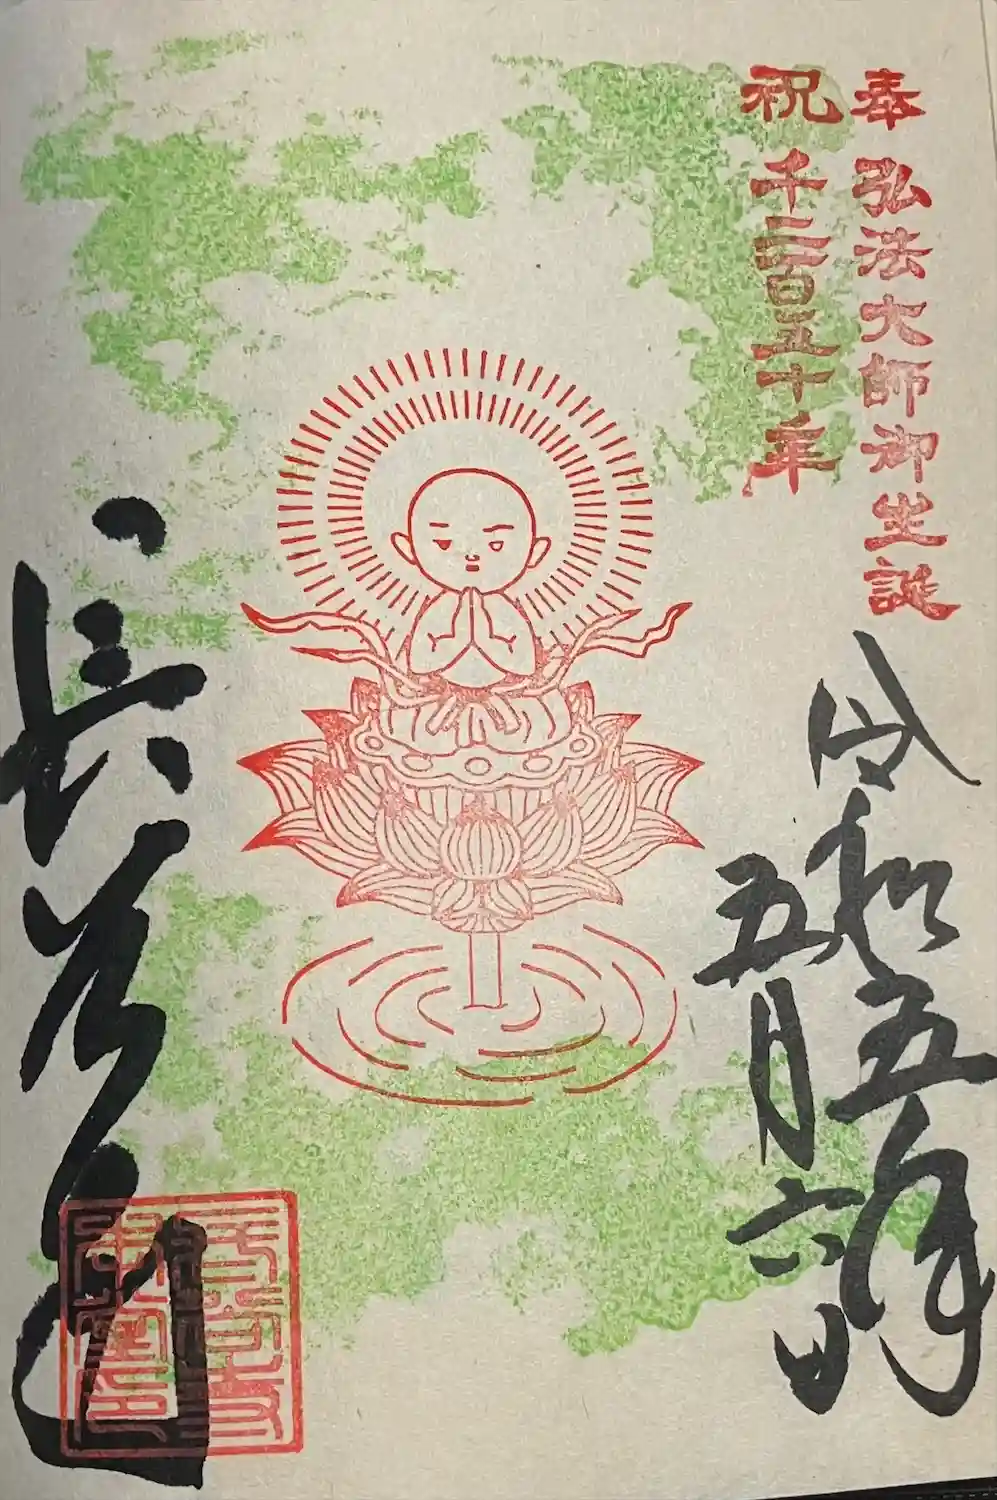 奉 弘法大師御生誕
祝 千二百五十年
令和五年
五月六日
長谷寺